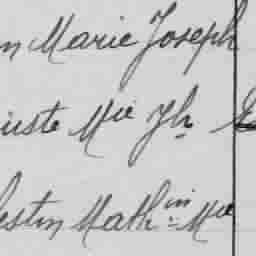 n Marie Joseph
uste Mie Jh
lestin Mathin Mie